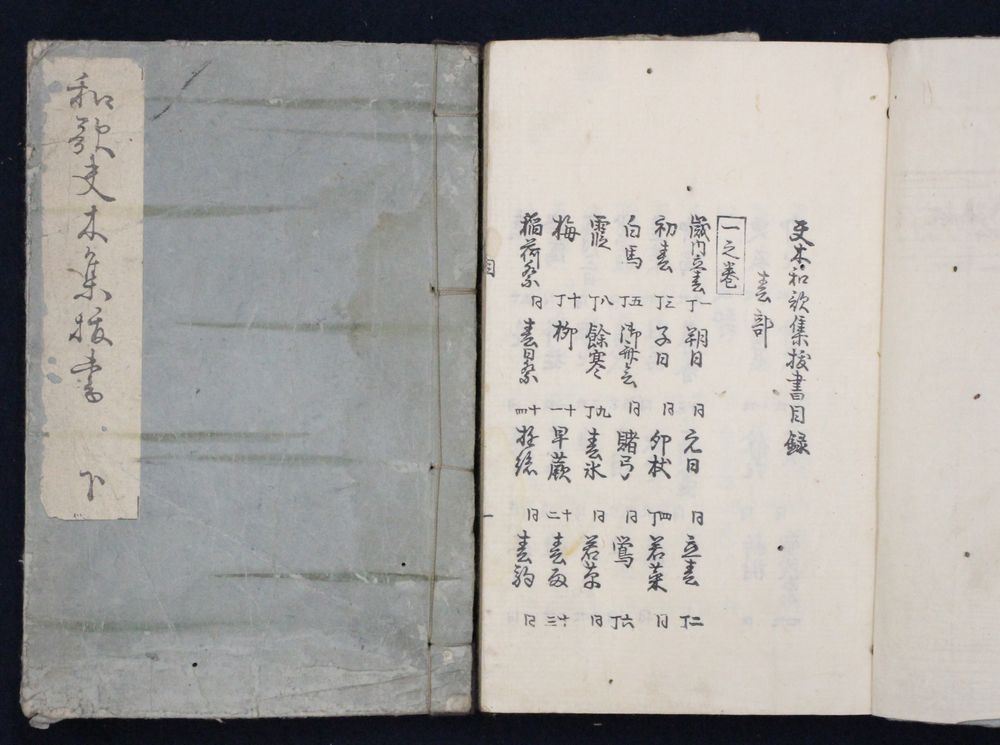 和歌夫木集抜書 下
夫木和歌集抜書目録
春部
一之巻
歳内立春 一丁 朔日 同 元日 同 立春 二丁
初春 三丁 子日 同 卯杖 四丁 若菜 同
白馬 五丁 御斎会 同 賭弓 同 鶯 六丁
霞 八丁 餘寒 九丁 春氷 同 若草 同
梅 十丁 柳 十一 早蕨 十二 春雨 十三
稲荷祭 同 春日祭 十四 遊絲 同 春駒 同
目 一